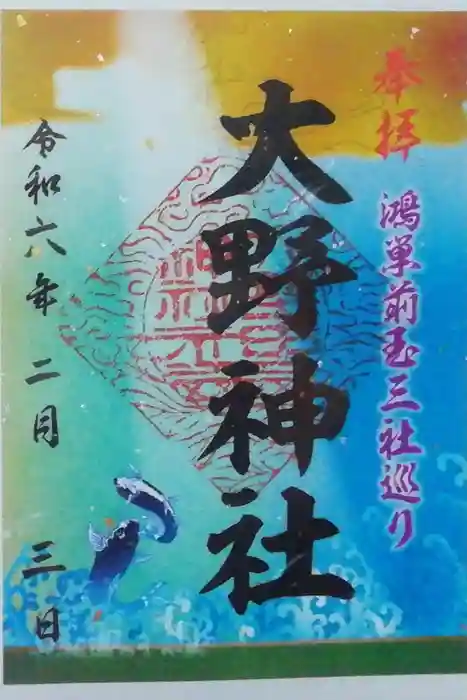 奉拝
鴻巣前玉三社巡り
大野神社
令和六年 二月 三日